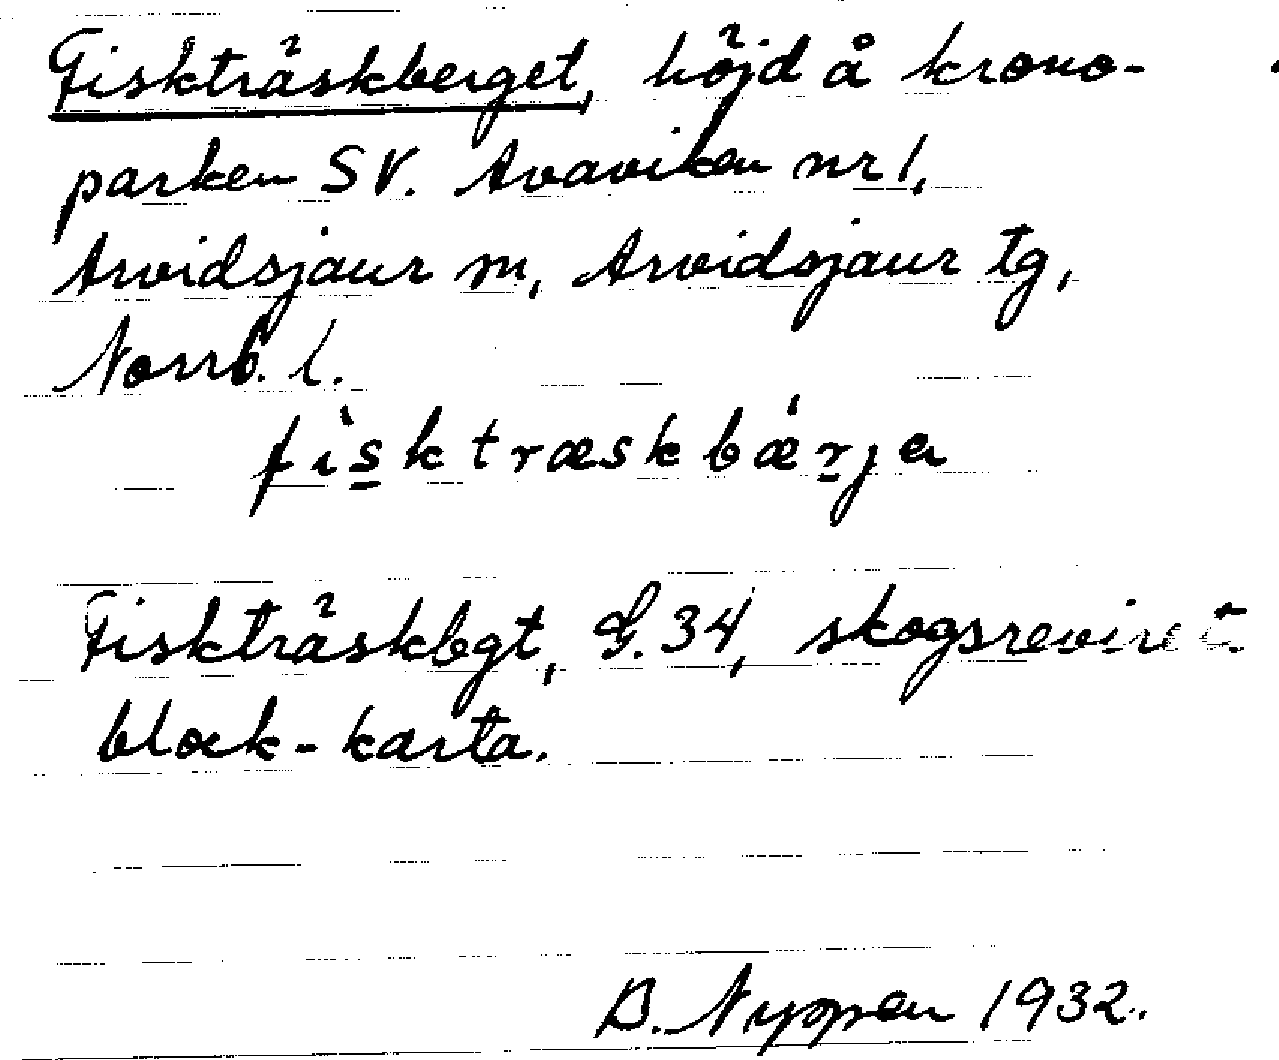 Fiskträskberget, höjd å krono-
parken SV. Avaviken nr 1,
Arvidsjaur sn, Arvidsjaur tg,
Norrb. l.
fi̱sktræskbæṟja
Fiskträskbgt, G. 34, skogsreviret
block-karta.
B. Nyppen 1932.